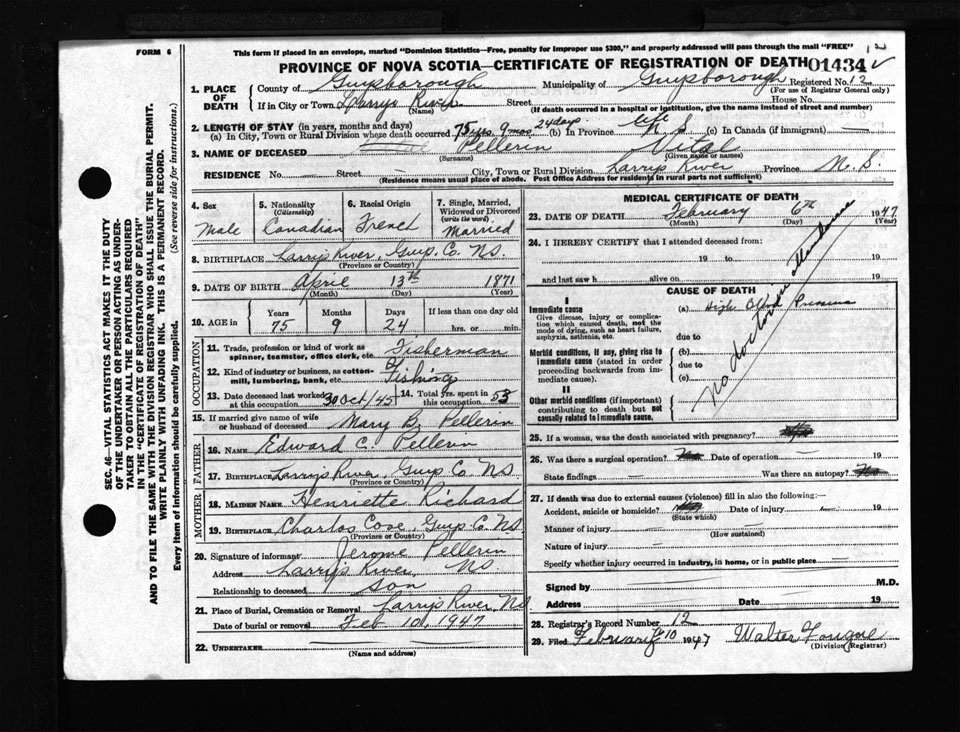 FORM 6
This form if placed in an envelope, marked "Dominion Statistics—Free, penalty for improper use $300," and properly addressed will pass through the mail "FREE"
12
PROVINCE OF NOVA SCOTIA—CERTIFICATE OF REGISTRATION OF DEATH 01434
1. PLACE OF DEATH
County of Guysborough Municipality of Guysborough Registered No. 12
(For use of Registrar General only)
If in City or Town Larrys River Street House No.
(Name) (If death occurred in a hospital or institution, give the name instead of street and number)
2. LENGTH OF STAY (in years, months and days)
(a) In City, Town or Rural Division where death occurred 75 yrs. 9 mos 24 days. (b) In Province life N S (c) In Canada (if immigrant)
3. NAME OF DECEASED Pellerin Vital
(Surname) (Given name or names)
RESIDENCE No. Street City, Town or Rural Division Larrys River Province N. S.
(Residence means usual place of abode. Post Office Address for residents in rural parts not sufficient)
4. Sex Male
5. Nationality (Citizenship) Canadian
6. Racial Origin French
7. Single, Married, Widowed or Divorced (write the word) Married
8. BIRTHPLACE Larrys River, Guys. Co. NS.
(Province or Country)
9. DATE OF BIRTH April 13th 1871
(Month) (Day) (Year)
10. AGE in Years Months Days If less than one day old
75 9 24 hrs. or min.
OCCUPATION
11. Trade, profession or kind of work as spinner, teamster, office clerk, etc. Fisherman
12. Kind of industry or business, as cotton-mill, lumbering, bank, etc. Fishing
13. Date deceased last worked at this occupation 30 Oct/45
14. Total yrs. spent in this occupation 53
15. If married give name of wife or husband of deceased Mary B. Pellerin
FATHER
16. NAME Edward C. Pellerin
17. BIRTHPLACE Larrys River, Guys Co. NS
(Province or Country)
MOTHER
18. MAIDEN NAME Henriette Richard
19. BIRTHPLACE Charlos Cove, Guys. Co. NS.
(Province or Country)
20. Signature of informant Jerome Pellerin
Address Larrys River NS
Relationship to deceased son
21. Place of Burial, Cremation or Removal Larrys River, NS
Date of burial or removal Feb 10, 1947
22. UNDERTAKER
(Name and address)
MEDICAL CERTIFICATE OF DEATH
23. DATE OF DEATH February 6th 1947
(Month) (Day) (Year)
24. I HEREBY CERTIFY that I attended deceased from:
19 to 19
and last saw h alive on 19
CAUSE OF DEATH
I
Immediate cause
Give disease, injury or complication which caused death, not the mode of dying, such as heart failure, asphyxia, asthenia, etc.
(a) High Blood Pressure
due to
Morbid conditions, if any, giving rise to immediate cause (stated in order proceeding backwards from immediate cause).
(b)
due to
(c)
II
Other morbid conditions (if important) contributing to death but not causally related to immediate cause.
no doctor in attendance
25. If a woman, was the death associated with pregnancy?
26. Was there a surgical operation? Date of operation
State findings Was there an autopsy?
27. If death was due to external causes (violence) fill in also the following:—
Accident, suicide or homicide? Date of injury 19
(State which)
Manner of injury
(How sustained)
Nature of injury
Specify whether injury occurred in industry, in home, or in public place
Signed by M.D.
Address Date 19
28. Registrar's Record Number 12
29. Filed February 10 1947 Walter Fougere
(Division Registrar)
SEC. 46—VITAL STATISTICS ACT MAKES IT THE DUTY
OF THE UNDERTAKER OR PERSON ACTING AS UNDER-
TAKER TO OBTAIN ALL THE PARTICULARS REQUIRED
IN THE "CERTIFICATE OF REGISTRATION OF DEATH"
AND TO FILE THE SAME WITH THE DIVISION REGISTRAR WHO SHALL ISSUE THE BURIAL PERMIT.
WRITE PLAINLY WITH UNFADING INK. THIS IS A PERMANENT RECORD.
Every item of information should be carefully supplied. (See reverse side for instructions.)